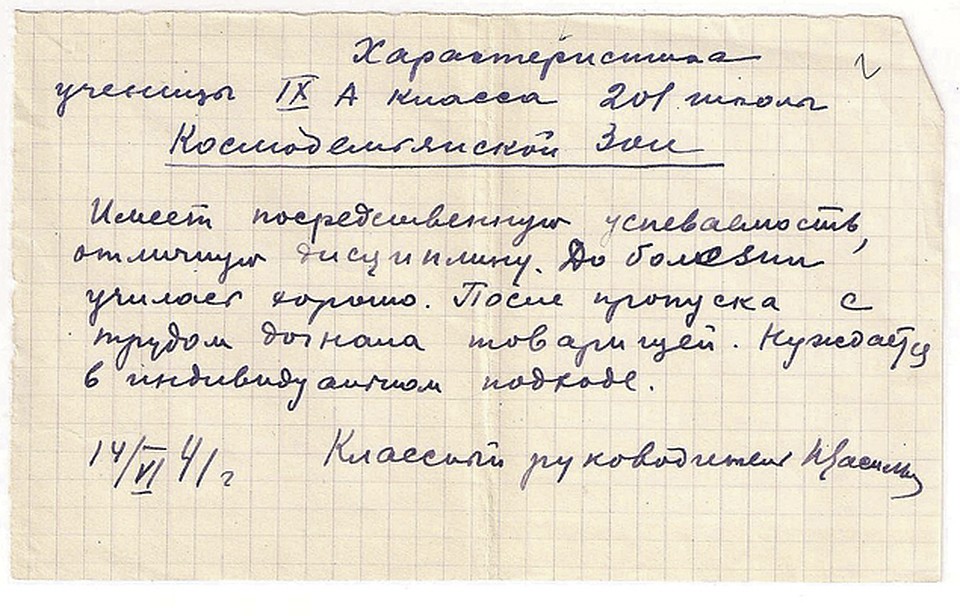 Характеристика
ученицы IX А класса 201 школы
Космодемьянской Зои
Имеет посредственную успеваемость,
отличную дисциплину. До болезни
училась хорошо. После пропуска с
трудом догнала товарищей. Нуждается
в индивидуальном подходе.
14/VI 41 г Классный руководитель